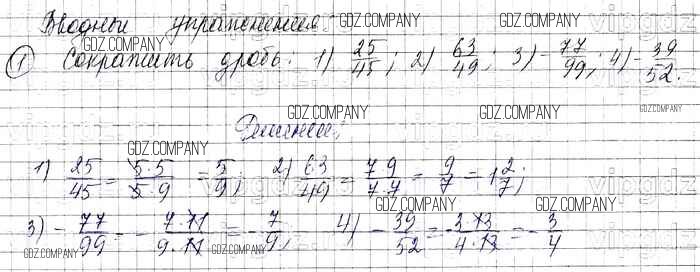 Вводные упражнения
GDZ.COMPANY
① Сократить дробь. 1) 25/45; 2) 63/49; 3) -77/99; 4) -39/52.
GDZ.COMPANY GDZ.COMPANY GDZ.COMPANY
Решение:
1) 25/45 = 5·5/5·9 = 5/9; 2) 63/49 = 7 9/7·7 = 9/7 = 1 2/7;
GDZ.COMPANY GDZ.COMPANY GDZ.COMPANY
3) -77/99 = -7·11/9·11 = -7/9; 4) -39/52 = -3·13/4·13 = -3/4
GDZ.COMPANY GDZ.COMPANY GDZ.COMPANY